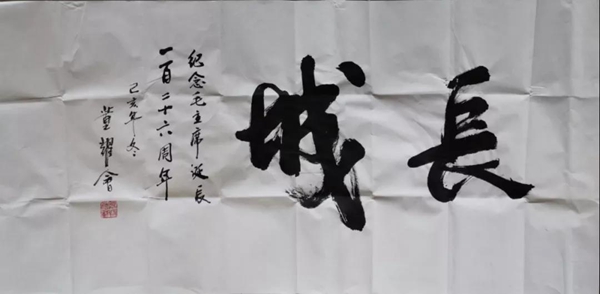 長城
纪念毛主席诞辰
一百二十六周年
己亥年冬
董耀會